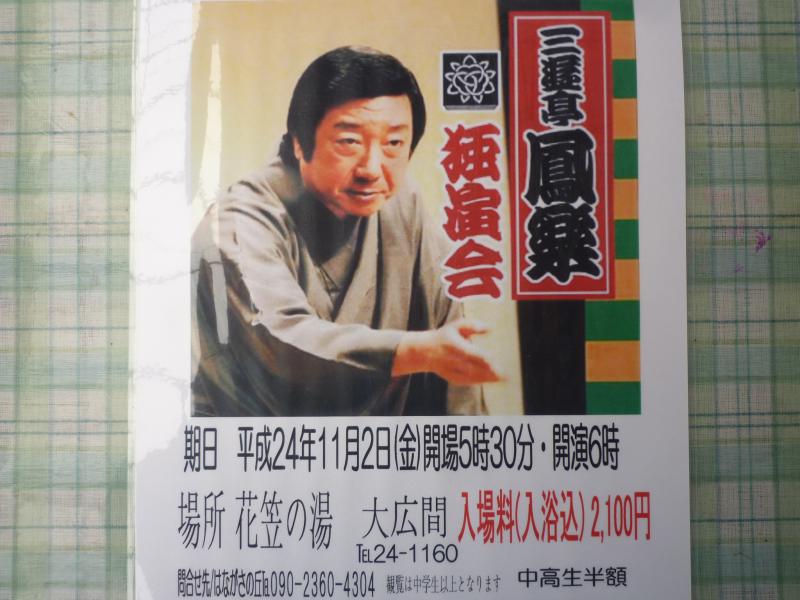 三遊亭 鳳樂
独演会
期日 平成24年11月2日(金)開場5時30分・開演6時
場所 花笠の湯 大広間 入場料(入浴込) 2,100円
TEL24-1160
問合せ先/はながさの丘TEL090-2360-4304 観覧は中学生以上となります 中高生半額